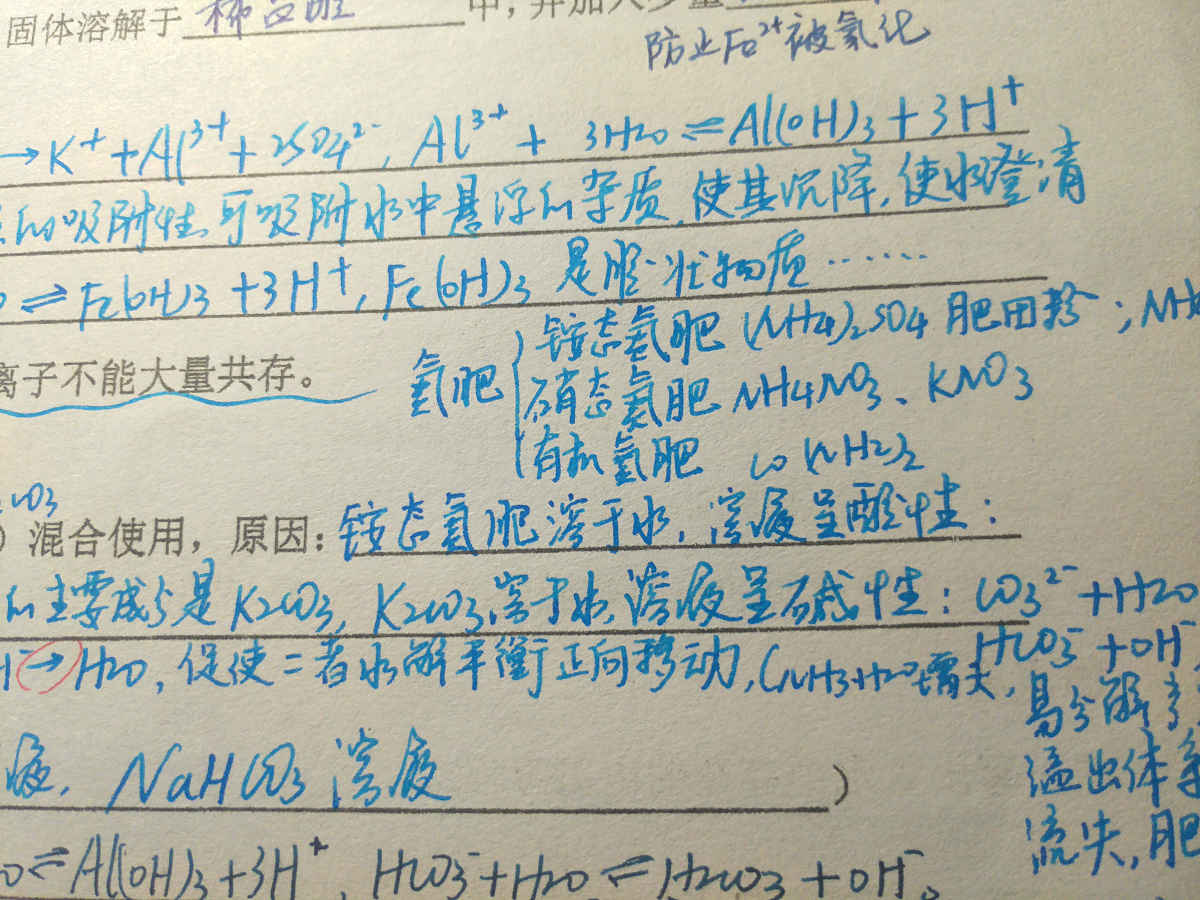 固体溶解于 稀硫酸 中,并加入少量
防止Fe²⁺被氧化
→K⁺+Al³⁺+2SO4²⁻, Al³⁺ + 3H2O⇌Al(OH)3+3H⁺
的吸附性,可吸附水中悬浮的杂质,使其沉降,使水澄清
⇌Fe(OH)3 +3H⁺, Fe(OH)3 是胶状物质……
离子不能大量共存。
氮肥
铵态氮肥 (NH4)2SO4 肥田粉;
硝态氮肥 NH4NO3、KNO3
有机氮肥 CO(NH2)2
CO3
)混合使用,原因:铵态氮肥溶于水,溶液呈酸性:
的主要成分是K2CO3, K2CO3溶于水,溶液呈碱性: CO3²⁻+H2O
HCO3⁻+OH⁻
→H2O, 促使二者水解平衡正向移动,(NH3·H2O增大,
易分解
溢出体系
流失,肥
液, NaHCO3溶液 )
⇌Al(OH)3+3H⁺, HCO3⁻+H2O⇌H2CO3+OH⁻。